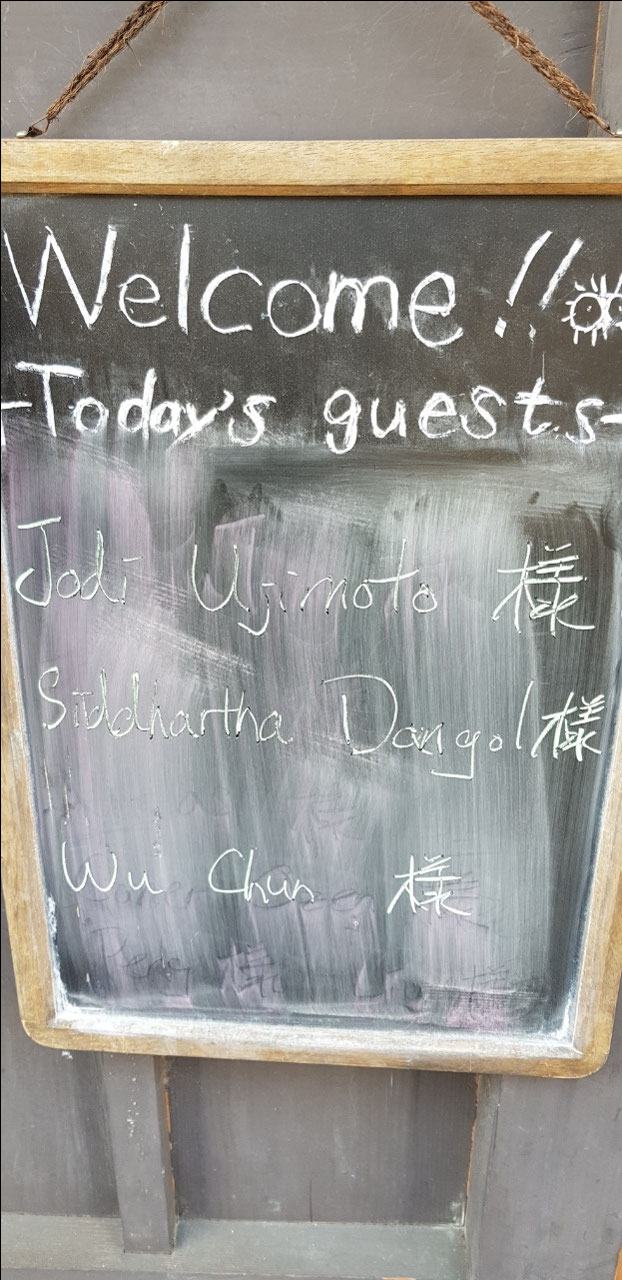 Welcome!!
-Today's guests-
Jodi Ujimoto 様
Siddhartha Dangol様
Wu Chun 様